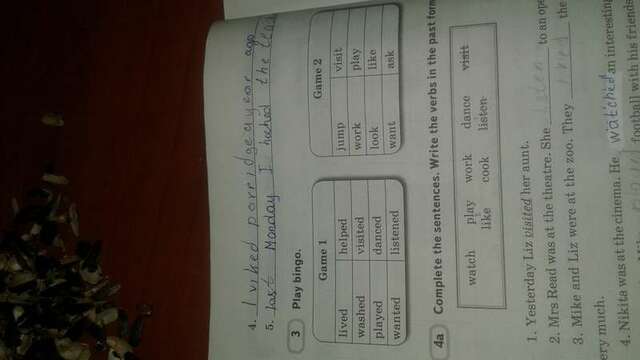 4. I viked porridge a year ago
5. last Monday I the
3 Play bingo.
Game 1
lived helped
washed visited
played danced
wanted listened
Game 2
jump visit
work play
look like
want ask
4a Complete the sentences. Write the verbs in the past form
watch play work dance visit
like cook listen
1. Yesterday Liz visited her aunt.
2. Mrs Read was at the theatre. She listen to an ope
3. Mike and Liz were at the zoo. They the
ery much.
4. Nikita was at the cinema. He watched an interesting
football with his friends